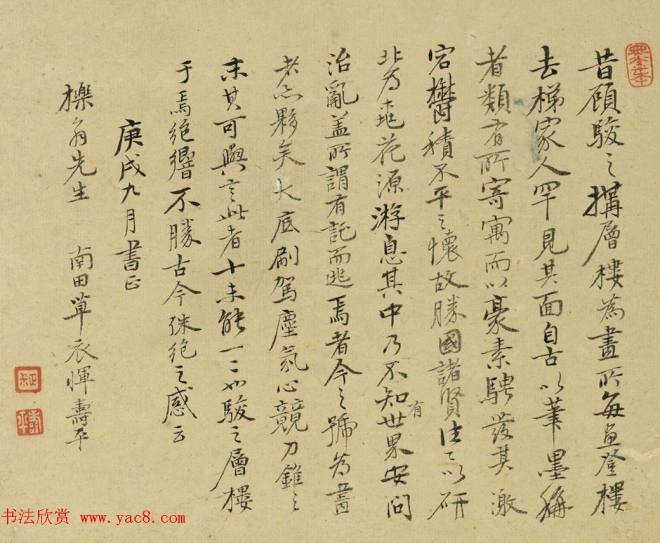 昔顧駿之搆層樓為畫所每畫登樓
去梯家人罕見其面自古以筆墨稱
者類有所寄寓而以豪素騁發其激
宕鬱積不平之懷故勝國諸賢往々以研
北為桃花源游息其中乃不知世界有安問
治亂盖所謂有託而逃焉者今之號為畫
者亦夥矣大底刷駕塵氛心競刀錐之
末其可與言此者十未能一二也駿之層樓
于焉絕響不勝古今殊絕之感云
庚戌九月書正
櫟翁先生 南田草衣惲壽平
书法欣赏 www.yac8.com